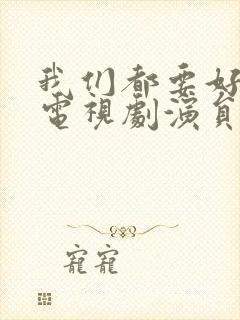 我们都要好
電視劇演員
寵寵